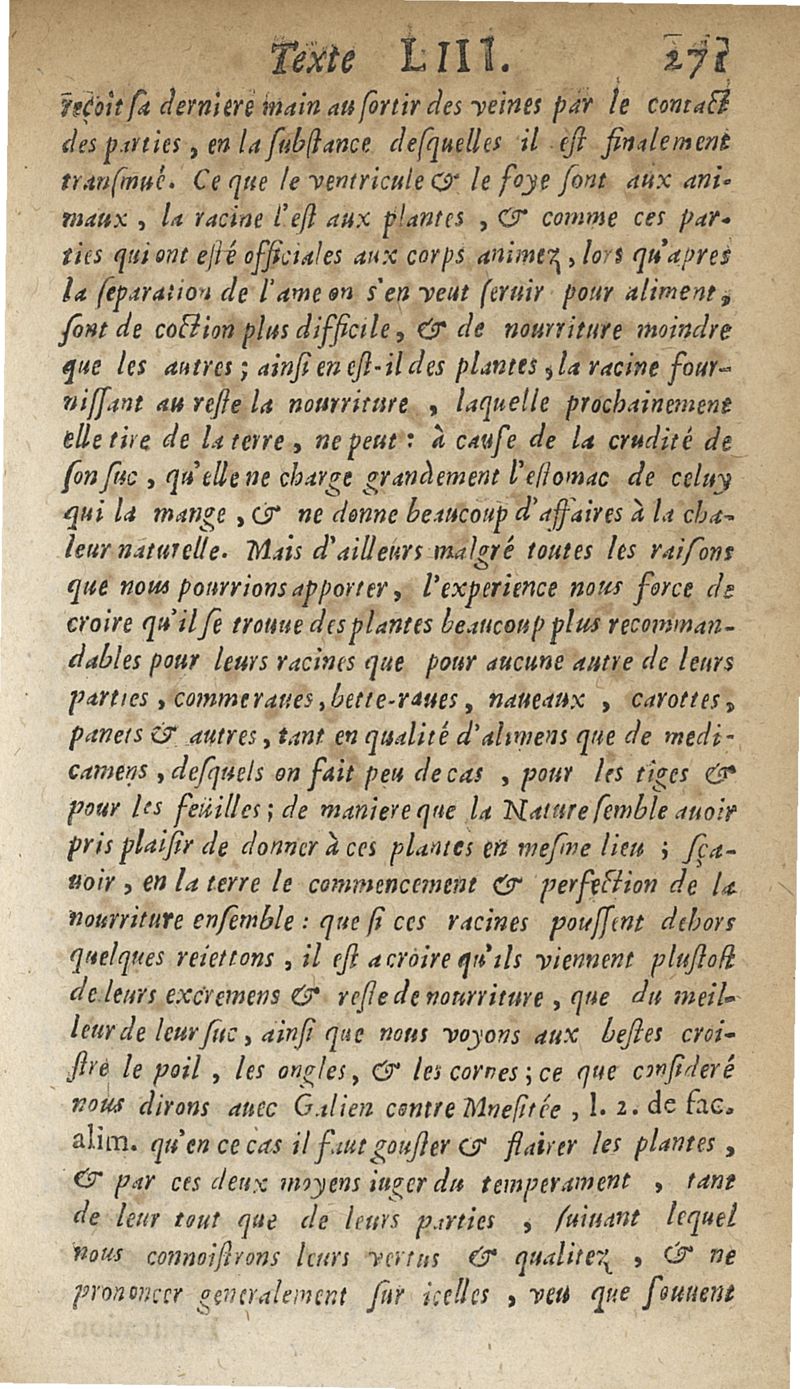 Texte LIII. 271
reçoit sa derniere main au sortir des veines par le contact
des parties, en la substance desquelles il est finalement
transmué. Ce que le ventricule & le foye sont aux ani-
maux, la racine l'est aux plantes, & comme ces par-
ties qui ont esté officiales aux corps animez, lors qu'apres
la separation de l'ame on s'en veut seruir pour aliment,
sont de coction plus difficile, & de nourriture moindre
que les autres; ainsi en est-il des plantes, la racine four-
nissant au reste la nourriture, laquelle prochainement
elle tire de la terre, ne peut: à cause de la crudité de
son suc, qu'elle ne charge grandement l'estomac de celuy
qui la mange, & ne donne beaucoup d'affaires à la cha-
leur naturelle. Mais d'ailleurs malgré toutes les raisons
que nous pourrions apporter, l'experience nous force de
croire qu'il se trouue des plantes beaucoup plus recomman-
dables pour leurs racines que pour aucune autre de leurs
parties, comme raues, bette-raues, naueaux, carottes,
panets & autres, tant en qualité d'alimens que de medi-
camens, desquels on fait peu de cas, pour les tiges &
pour les feüilles; de maniere que la Nature semble auoir
pris plaisir de donner à ces plantes en mesme lieu; sça-
uoir, en la terre le commencement & perfection de la
nourriture ensemble: que si ces racines poussent dehors
quelques reiettons, il est a croire qu'ils viennent plustost
de leurs excremens & reste de nourriture, que du meil-
leur de leur suc, ainsi que nous voyons aux bestes croi-
stre le poil, les ongles, & les cornes; ce que consideré
nous dirons auec Galien contre Mnesitée, l. 2. de fac.
alim. qu'en ce cas il faut gouster & flairer les plantes,
& par ces deux moyens iuger du temperament, tant
de leur tout que de leurs parties, suiuant lequel
nous connoistrons leurs vertus & qualitez, & ne
prononcer generalement sur icelles, veu que souuent